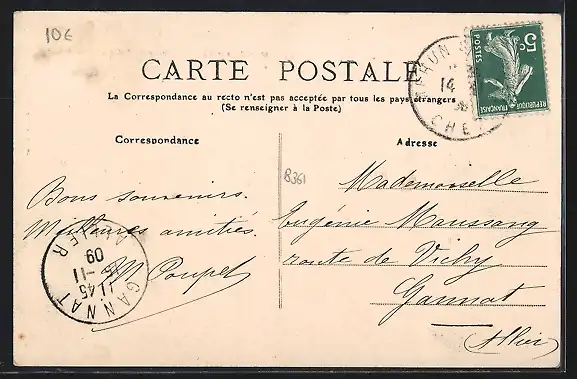 10€
CARTE POSTALE
La Correspondance au recto n'est pas acceptée par tous les pays étrangers
(Se renseigner à la Poste)
Correspondance
Adresse
5c
POSTES
REPUBLIQUE FRANÇAISE
14
CHER
B361
Bons souvenirs.
Meilleures amitiés.
M Poupet
Mademoiselle
Eugénie Maussang
route de Vichy
Gannat
Allier
GANNAT
ALLIER
11 45
-11
09